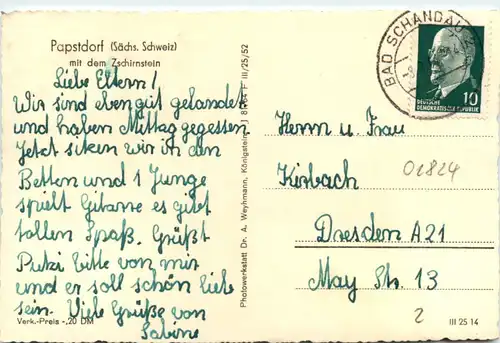 Papstdorf (Sächs. Schweiz)
mit dem Zschirnstein
Liebe Eltern!
Wir sind eben gut gelandet
und haben Mittag gegessen.
Jetzt sitzen wir in den
Betten und 1 Junge
spielt Gitarre es gibt
tollen Spaß. Grüßt
Putzi bitte von mir
und er soll schön lieb
sein. Viele Grüße von
Sabine
Verk.-Preis -,20 DM
Photowerkstatt Dr. A. Weyhmann, Königstein
III/25/52
BAD SCHANDAU 2
10
DEUTSCHE
DEMOKRATISCHE REPUBLIK
Herrn u. Frau
Kirbach
02824
Dresden A21
May Str. 13
2
III 25 14